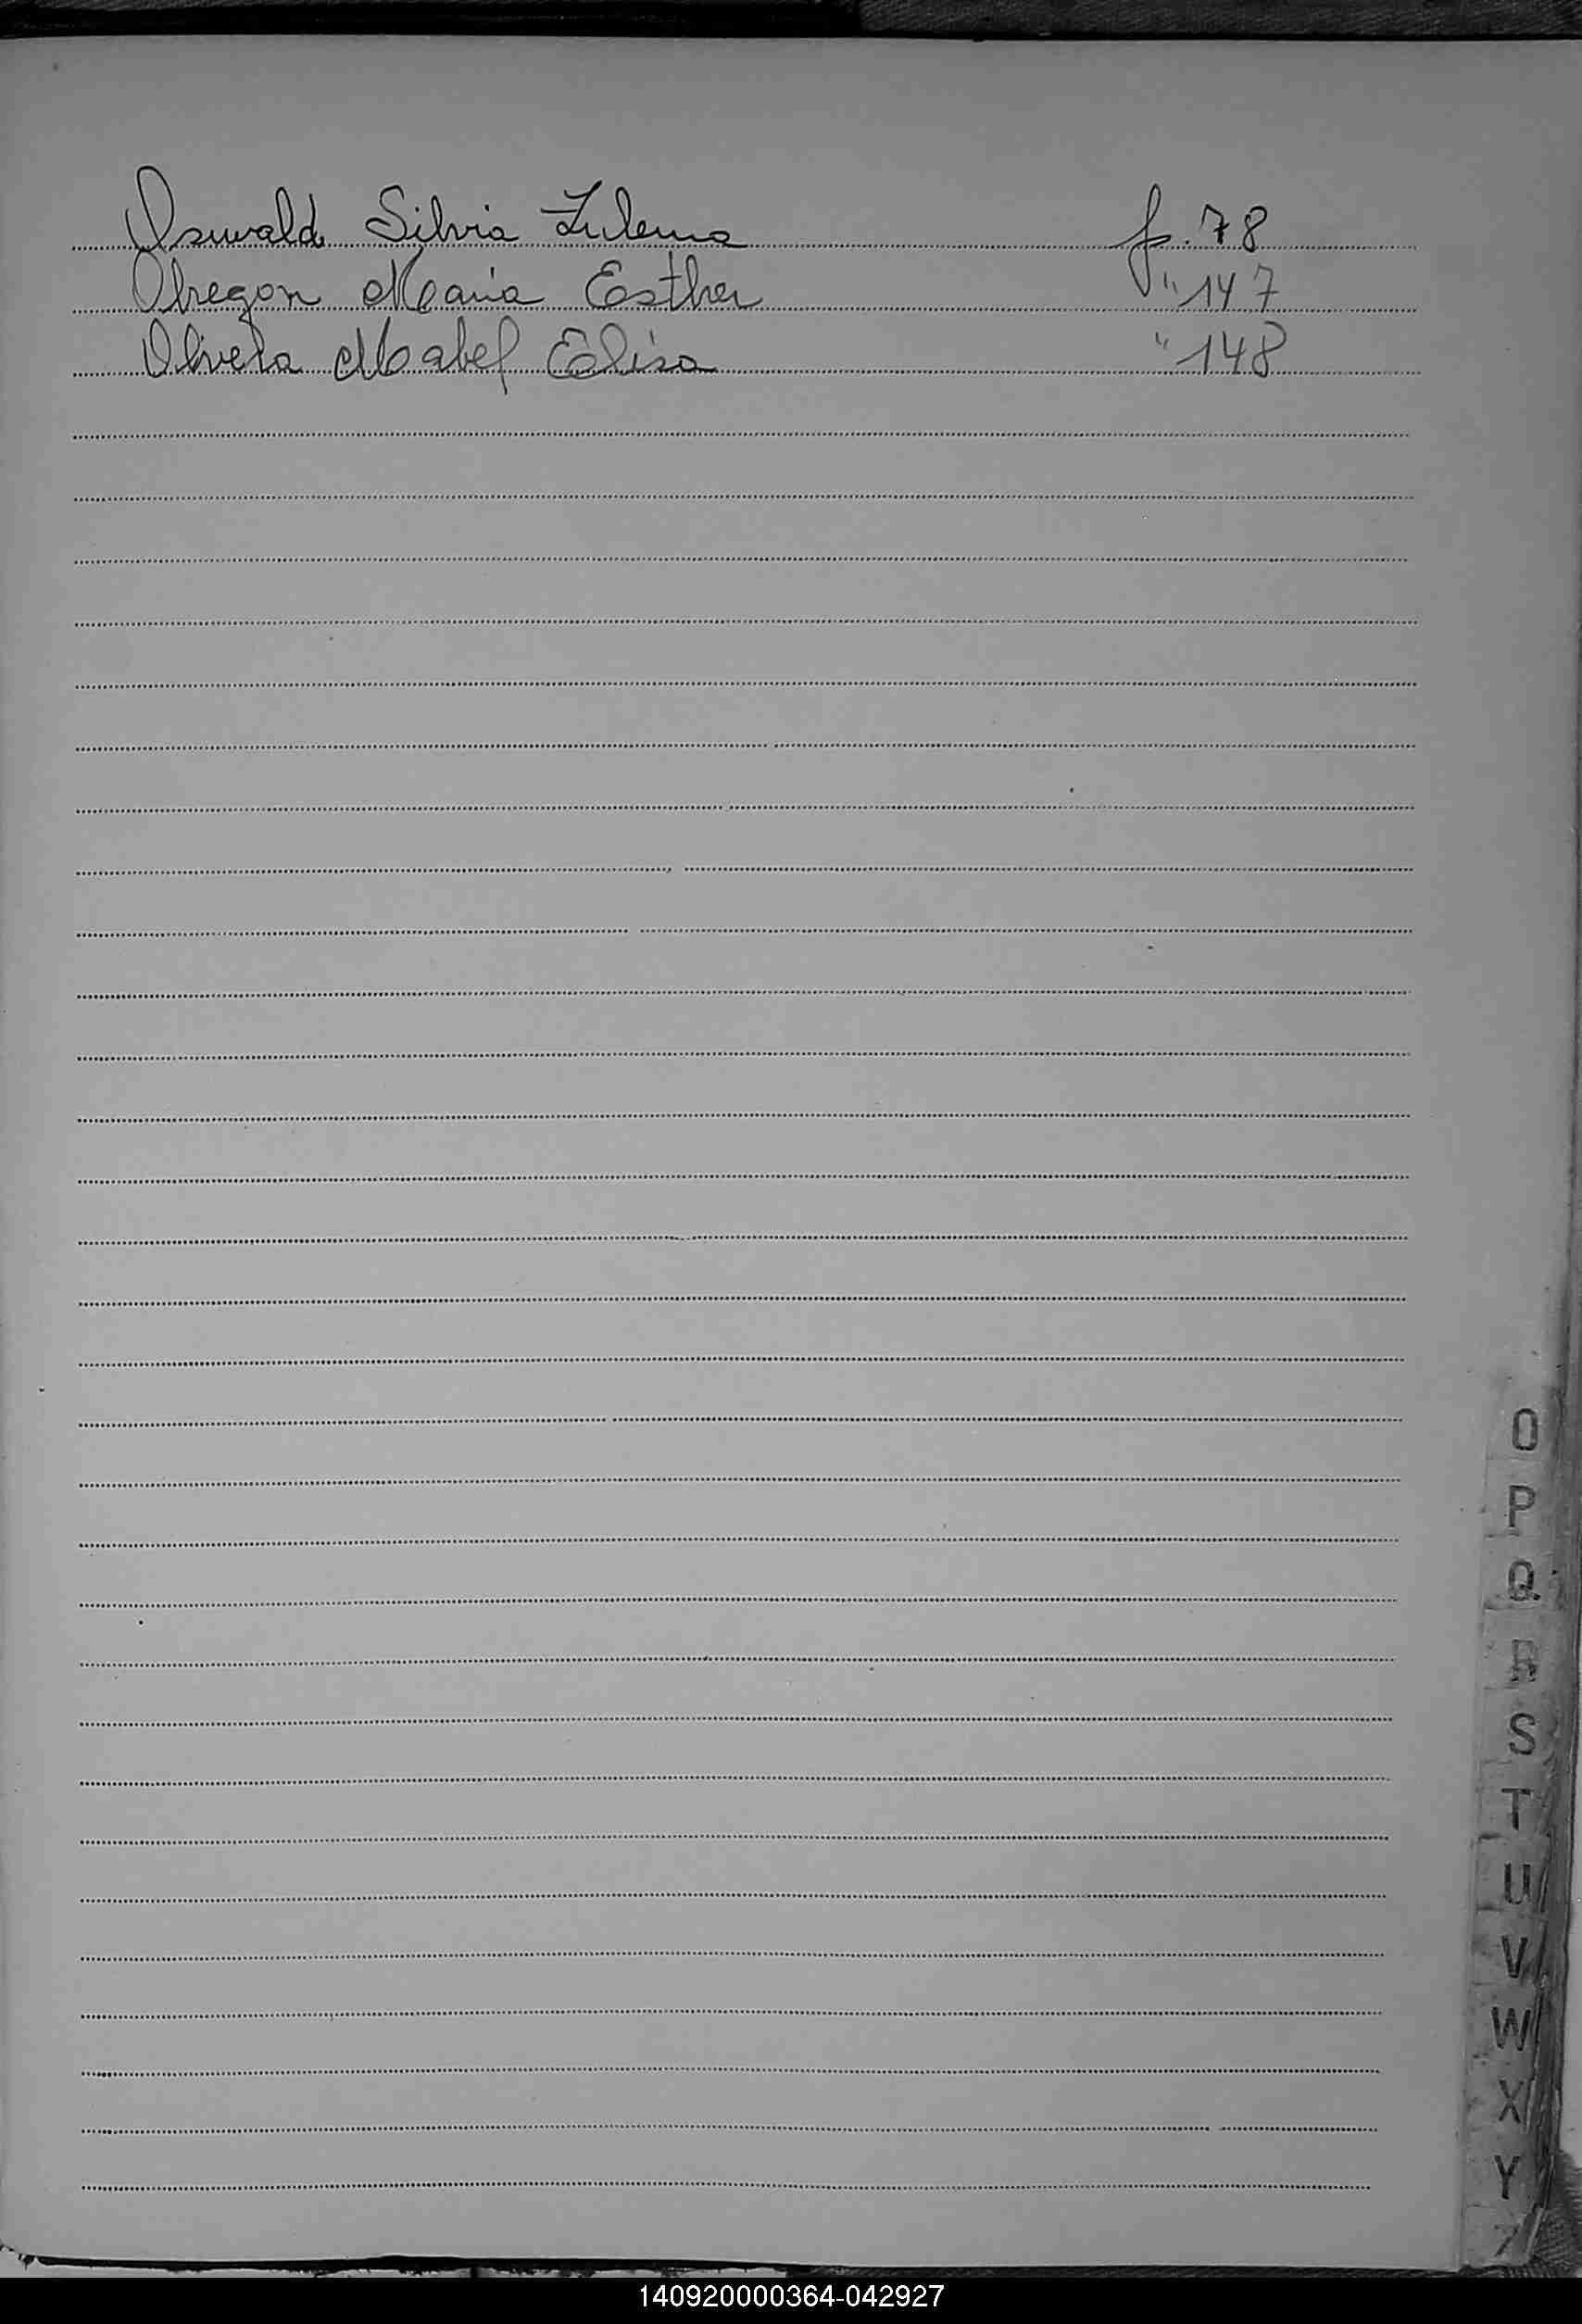 Oswald Silvia Zulema f. 78
Obregon Maria Esther " 147
Olivera Mabel Elisa " 148
O
P
Q
R
S
T
U
V
W
X
Y
Z
140920000364-042927